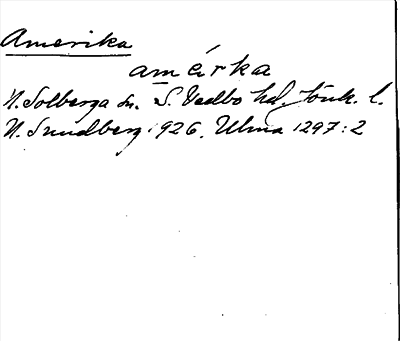 Amerika
amérka
N. Solberga sn. S. Vedbo hd. Jönk. l.
N. Sundberg 1926. Ulma 1297:2